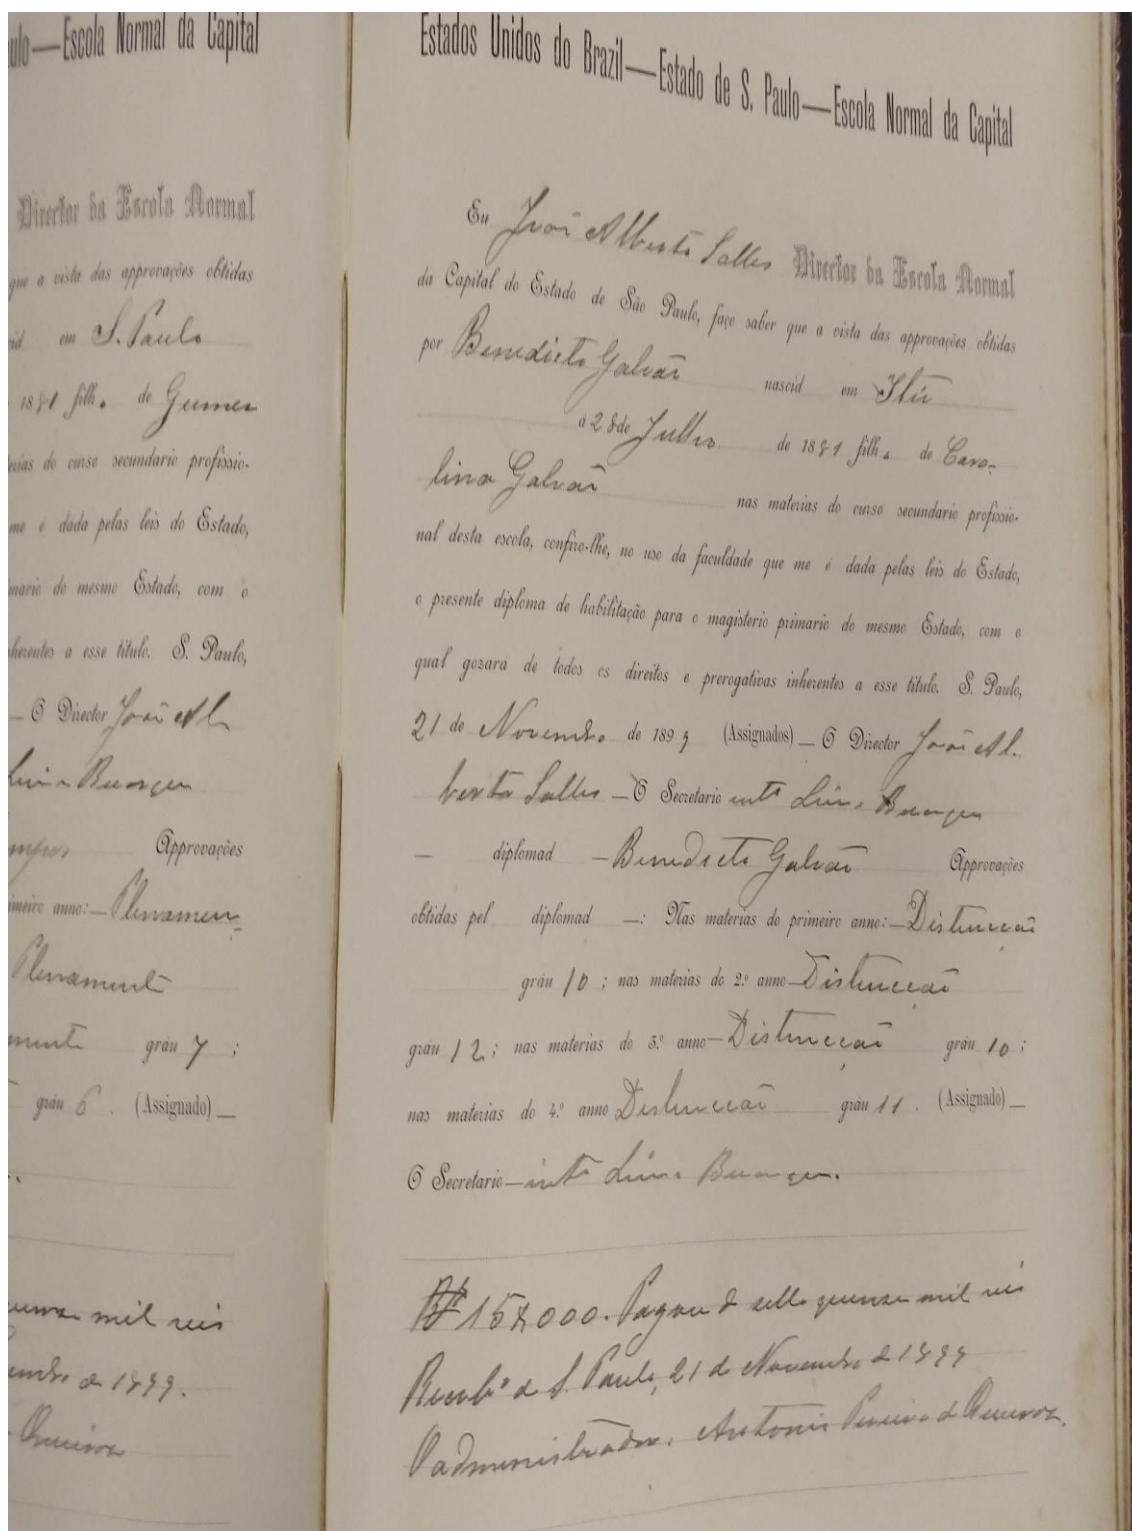 ulo—Escola Normal da Capital
Director da Escola Normal
que a vista das approvações obtidas
em S. Paulo
1881 filh. de Gumer
do curso secundario profissio-
me é dada pelas leis do Estado,
do mesmo Estado, com o
inherentes a esse titulo. S. Paulo,
— O Director João Al
Approvações
anno:—Plenamen-
Plenamente
gráu 7 ;
gráu 6 . (Assignado)—
mil reis
de 1899.
Queiroz
Estados Unidos do Brazil—Estado de S. Paulo—Escola Normal da Capital
Eu João Alberto Salles Director da Escola Normal
da Capital do Estado de São Paulo, faço saber que a vista das approvações obtidas
por Benedicto Galvão nascid em Itú
a 28 de Julho de 1881 filh. de Caro-
lina Galvão nas materias do curso secundario profissio-
nal desta escola, confiro-lhe, no uso da faculdade que me é dada pelas leis do Estado,
o presente diploma de habilitação para o magisterio primario do mesmo Estado, com o
qual gozará de todos os direitos e prerogativas inherentes a esse titulo. S. Paulo,
21 de Novembro de 1899 (Assignados)— O Director João Al-
berto Salles —O Secretario intº
— diplomad —Benedicto Galvão Approvações
obtidas pel diplomad —: Nas materias do primeiro anno:—Distincção
gráu 10 ; nas materias do 2.º anno—Distincção
gráu 12; nas materias do 3.º anno—Distincção gráu 10 ;
nas materias do 4.º anno Distincção gráu 11 . (Assignado)—
O Secretario—intº
15$000. Pagou de sello quinze mil reis
de S. Paulo, 21 de Novembro de 1899
O administrador, Antonio Pereira de Queiroz.